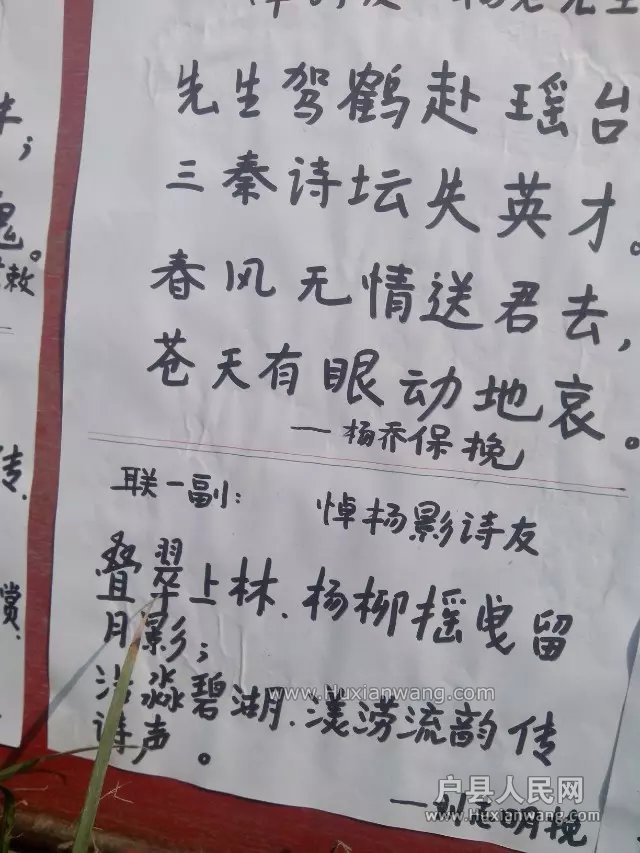 先生驾鹤赴瑶台
三秦诗坛失英才。
春风无情送君去,
苍天有眼动地哀。
—杨乔保挽
联一副: 悼杨影诗友
叠翠上林、杨柳摇曳留
月影;
淼碧湖、渼涝流韵传
诗声。
—刘志明挽
牛;
鬼。
敕
传.
赏.
www.Huxianwang.com
户县人民网
www.Huxianwang.com